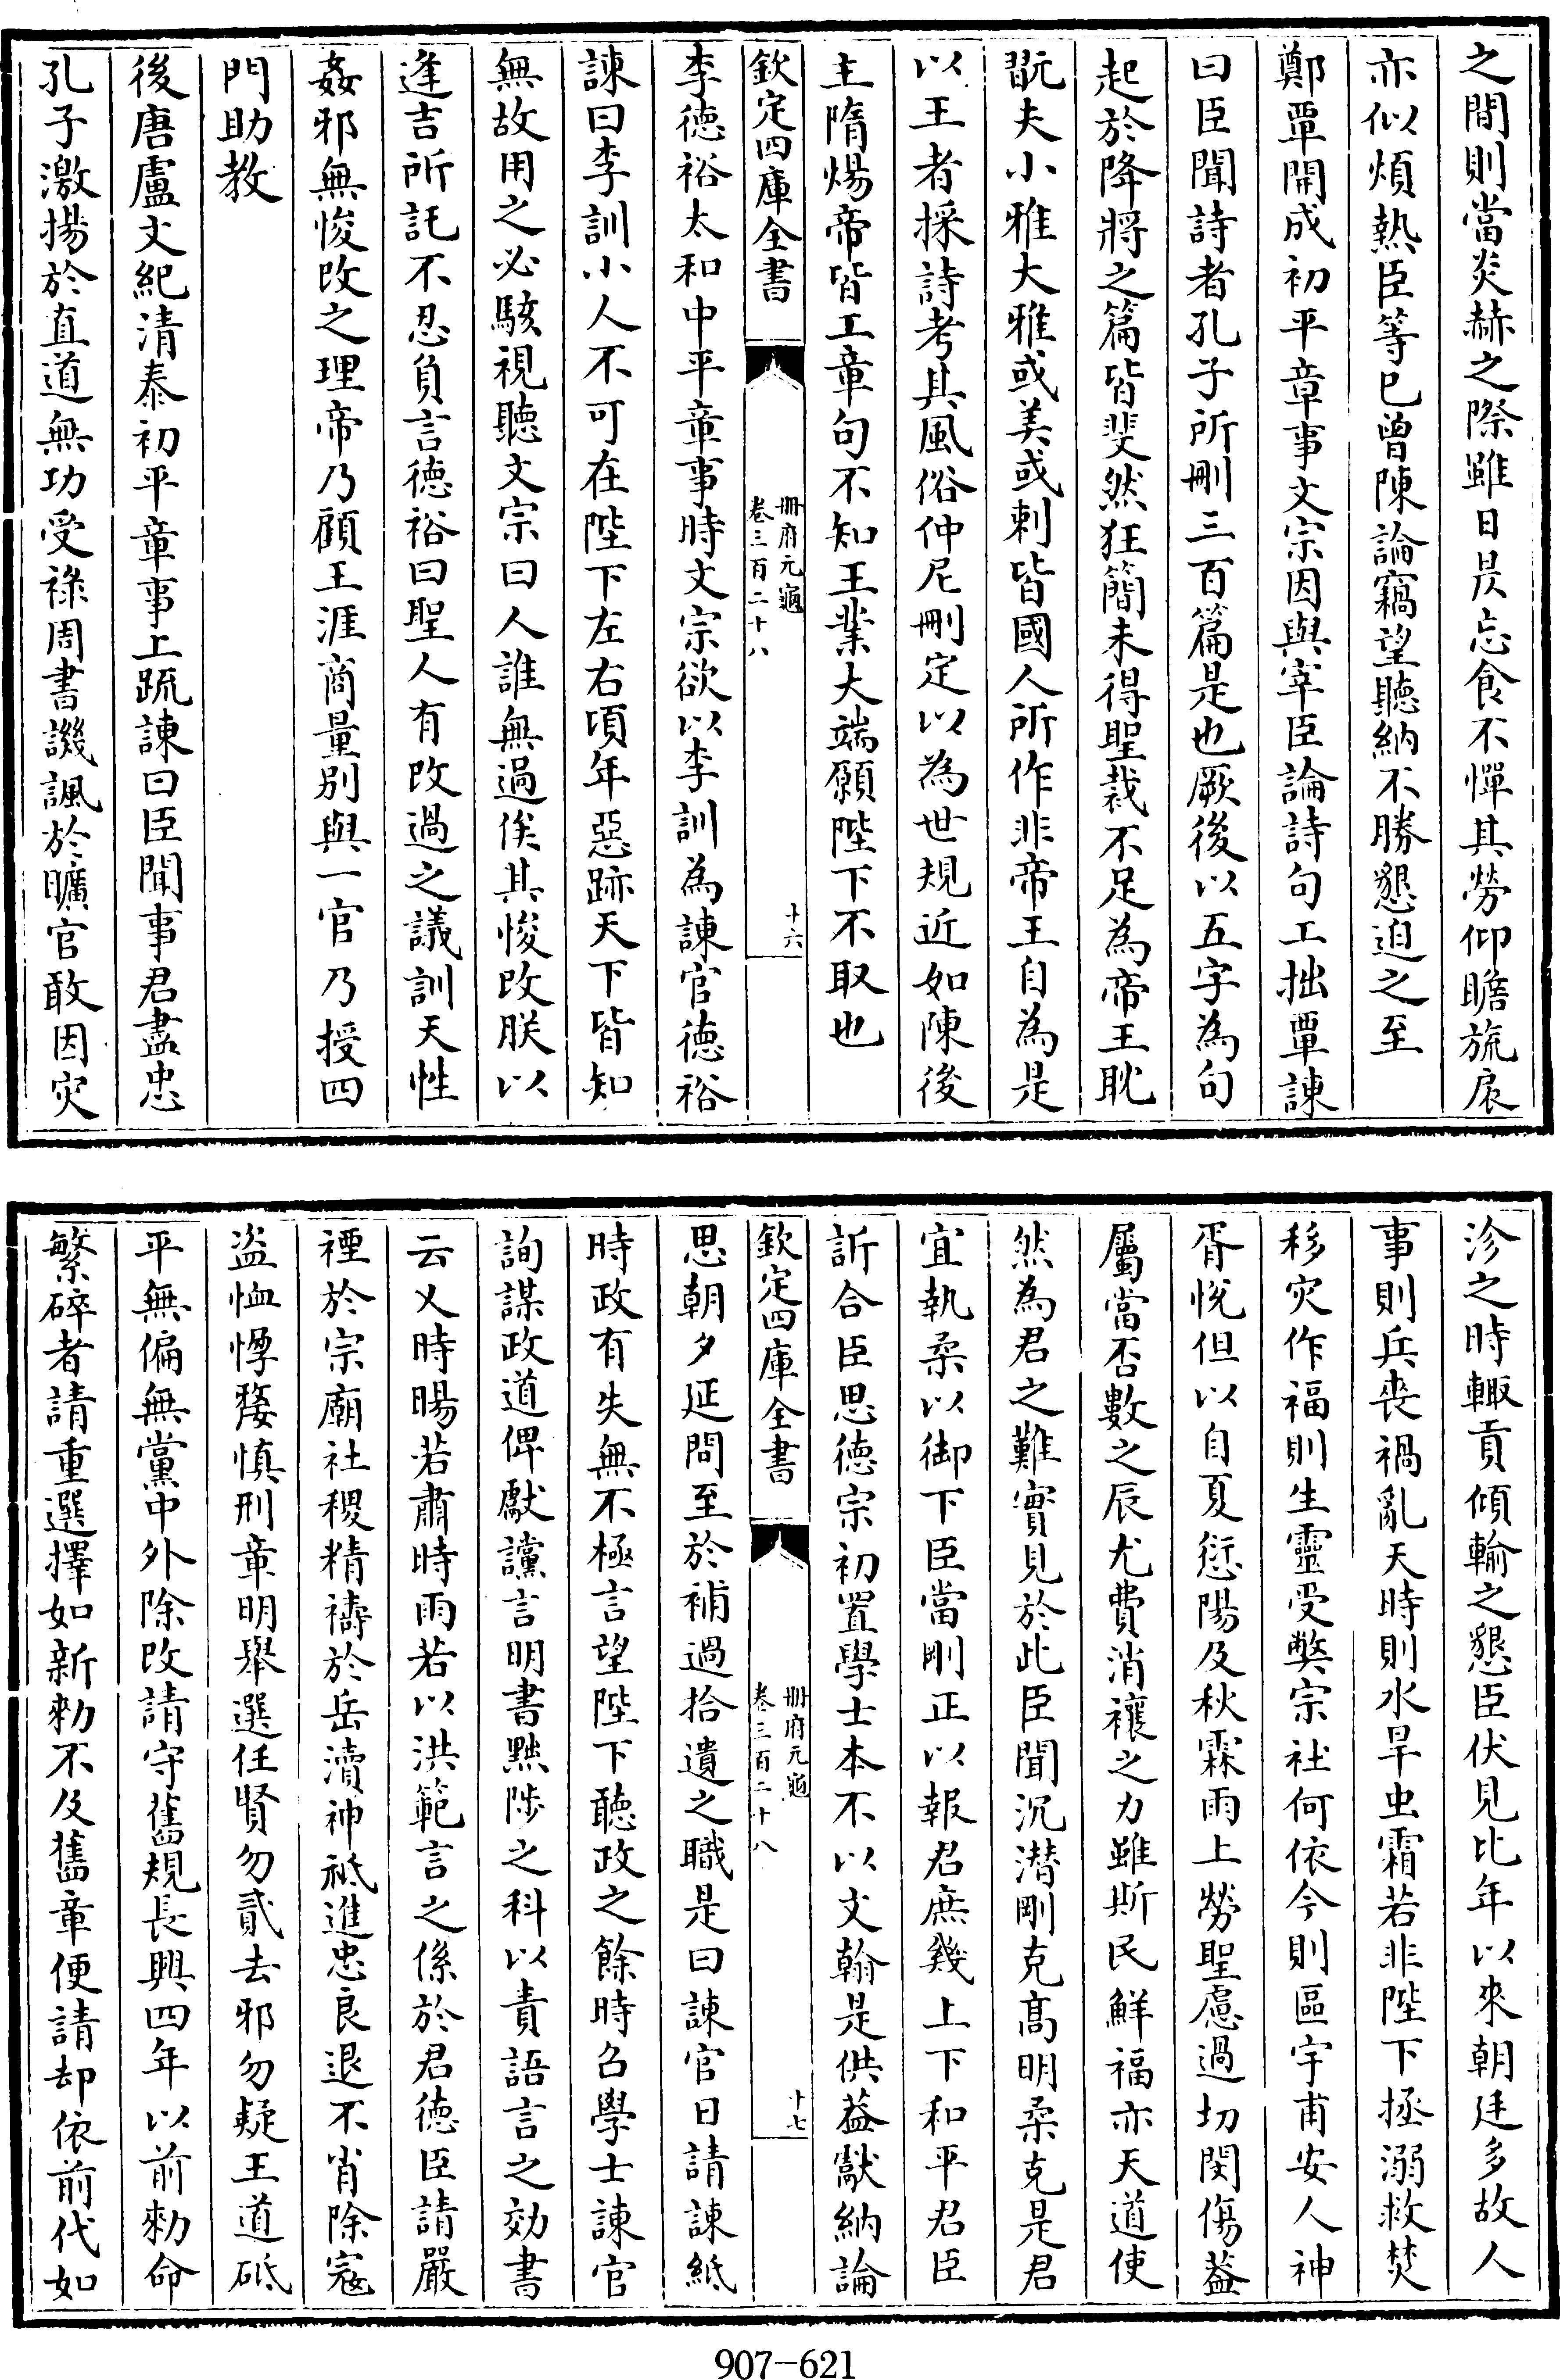 之間則當炎赫之際雖日昃忘食不憚其勞仰瞻旒扆
亦似煩熱臣等已曾陳論竊望聽納不勝懇迫之至
鄭覃開成初平章事文宗因與宰臣論詩句工拙覃諫
曰臣聞詩者孔子所刪三百篇是也厥後以五字為句
起於降將之篇皆斐然狂簡未得聖裁不足為帝王耽
翫夫小雅大雅或美或刺皆國人所作非帝王自為是
以王者採詩考其風俗仲尼刪定以為世規近如陳後
主隋煬帝皆工章句不知王業大端願陛下不取也
欽定四庫全書
冊府元龜
卷三百二十八
十六
李德裕太和中平章事時文宗欲以李訓為諫官德裕
諫曰李訓小人不可在陛下左右頃年惡跡天下皆知
無故用之必駭視聽文宗曰人誰無過俟其悛改朕以
逢吉所託不忍負言德裕曰聖人有改過之議訓天性
姦邪無悛改之理帝乃顧王涯商量别與一官乃授四
門助教
後唐盧文紀清泰初平章事上疏諫曰臣聞事君盡忠
孔子激揚於直道無功受祿周書譏諷於曠官敢因灾
沴之時輙貢傾輸之懇臣伏見比年以來朝廷多故人
事則兵丧禍亂天時則水旱虫霜若非陛下拯溺救焚
移灾作福則生靈受獘宗社何依今則區宇甫安人神
胥悦但以自夏愆陽及秋霖雨上勞聖慮過切閔傷葢
屬當否數之辰尤費消禳之力雖斯民鮮福亦天道使
然為君之難實見於此臣聞沉潛剛克髙明柔克是君
宜執柔以御下臣當剛正以報君庶幾上下和平君臣
訢合臣思德宗初置學士本不以文翰是供葢獻納論
欽定四庫全書
冊府元龜
卷三百二十八
十七
思朝夕延問至於補過拾遺之職是曰諫官日請諫紙
時政有失無不極言望陛下聽政之餘時召學士諫官
詢謀政道俾獻讜言明書黜陟之科以責語言之効書
云乂時暘若肅時雨若以洪範言之係於君德臣請嚴
禋於宗廟社稷精禱於岳瀆神祗進忠良退不肖除寇
盗恤惸嫠慎刑章明舉選任賢勿貳去邪勿疑王道砥
平無偏無黨中外除改請守舊規長興四年以前勑命
繁碎者請重選擇如新勑不及舊章便請却依前代如
907-621